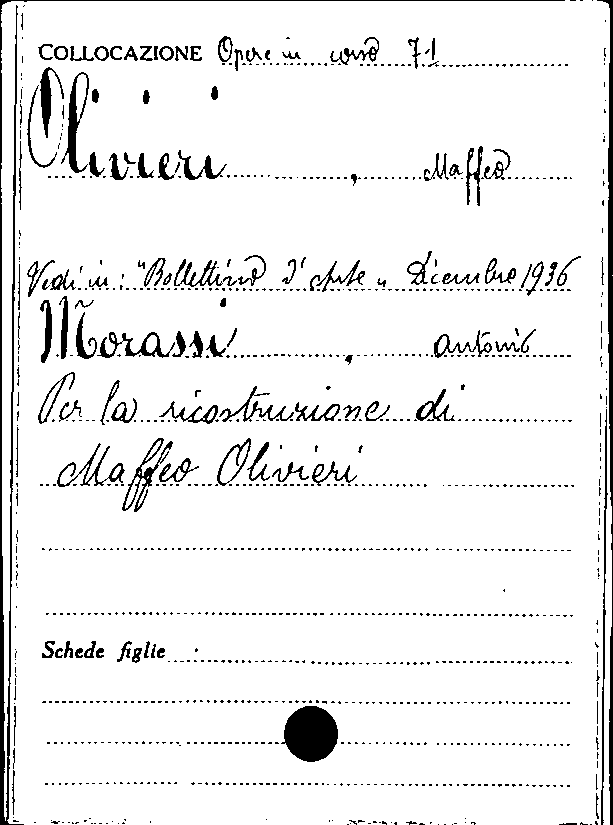 COLLOCAZIONE Opere in corso 71
Olivieri, Maffeo
Vedi in: "Bollettino d'Arte" Dicembre 1936
Morassi, Antonio
Per la ricostruzione di
Maffeo Olivieri
Schede figlie